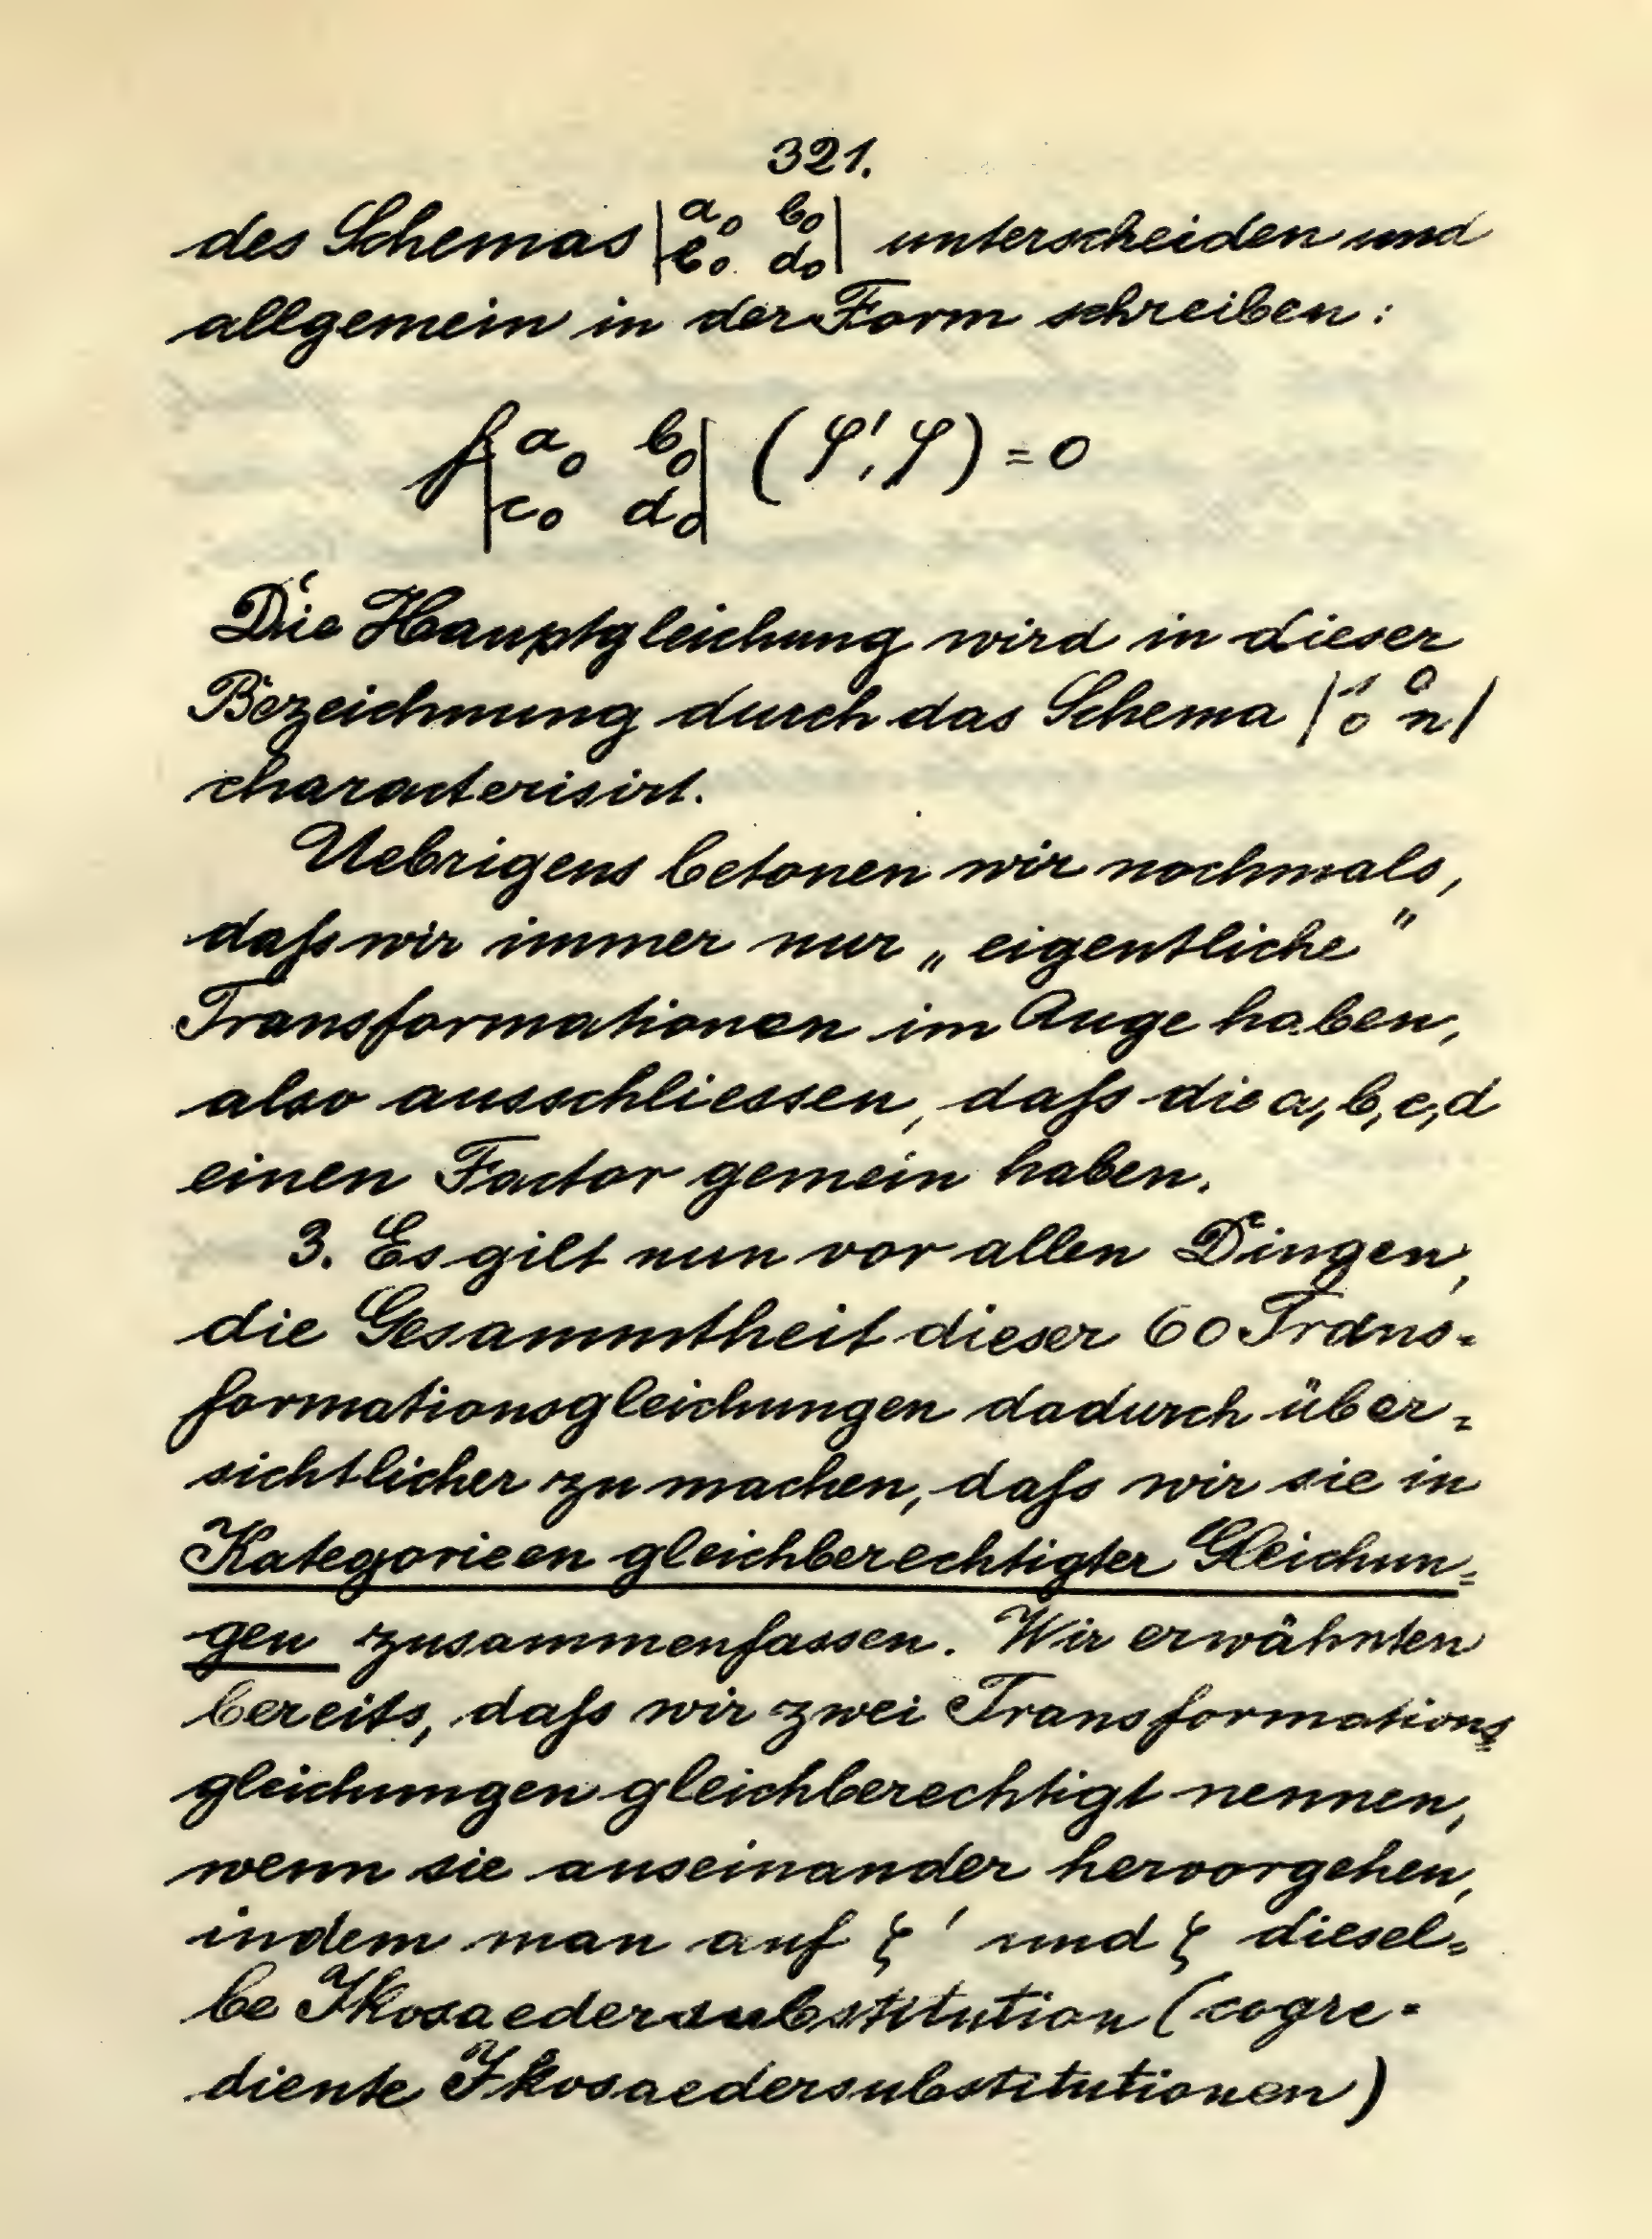 321.
des Schemas |a₀ b₀ / c₀ d₀| unterscheiden und
allgemein in der Form schreiben:
f|a₀ b₀ / c₀ d₀| (φ', φ) = 0
Die Hauptgleichung wird in dieser
Bezeichnung durch das Schema |1 0 / 0 n|
characterisirt.
Uebrigens betonen wir nochmals,
daſs wir immer nur „eigentliche"
Transformationen im Auge haben,
also ausschliessen, daſs die a, b, c, d
einen Factor gemein haben.
3. Es gilt nun vor allen Dingen,
die Gesammtheit dieser 60 Trans-
formationsgleichungen dadurch über-
sichtlicher zu machen, daſs wir sie in
Kategorieen gleichberechtigter Gleichun-
gen zusammenfassen. Wir erwähnten
bereits, daſs wir zwei Transformations-
gleichungen gleichberechtigt nennen,
wenn sie auseinander hervorgehen,
indem man auf ζ' und ζ diesel-
be Ikosaedersubstitution (cogre-
diente Ikosaedersubstitutionen)